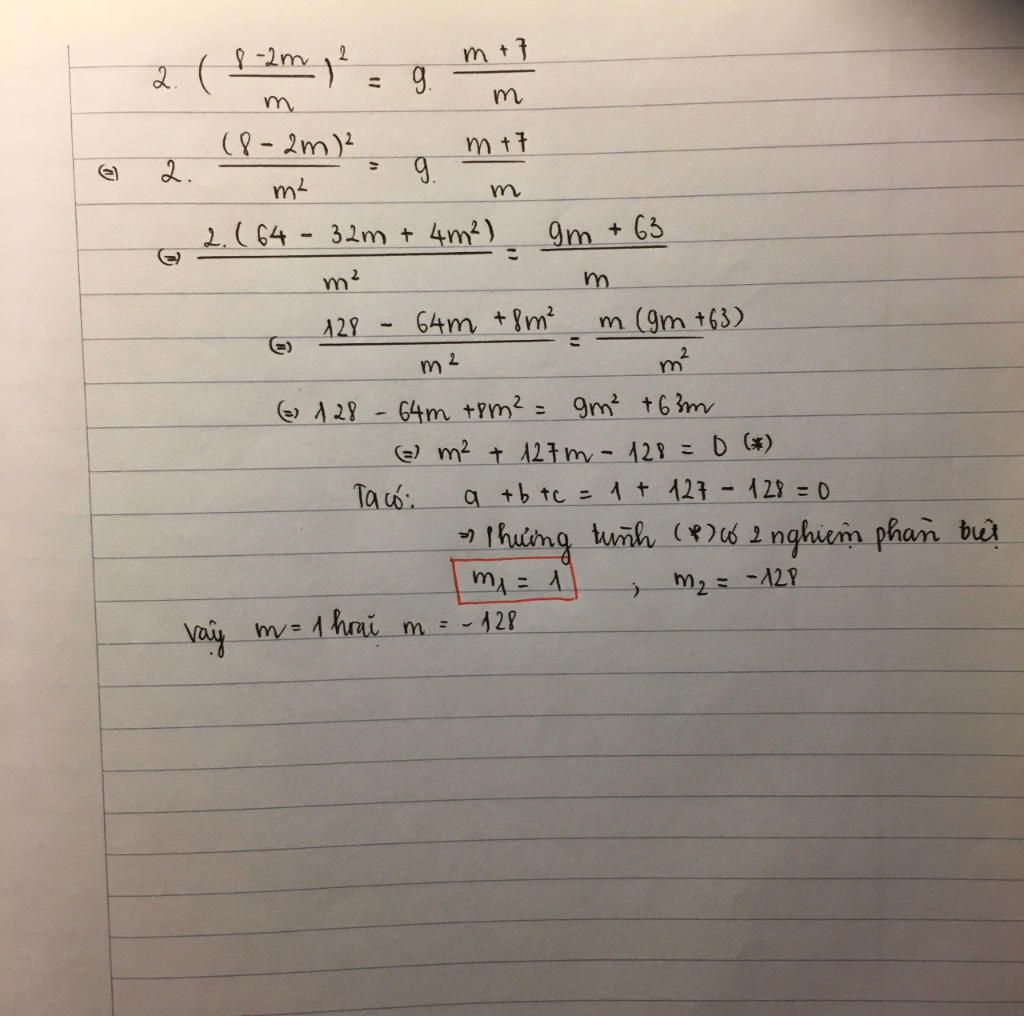 2. ( (8-2m)/m )² = 9. (m+7)/m
(=) 2. (8 - 2m)²/m² = 9. (m+7)/m
(=) 2.(64 - 32m + 4m²)/m² = (9m + 63)/m
(=) (128 - 64m + 8m²)/m² = m(9m+63)/m²
(=) 128 - 64m + 8m² = 9m² + 63m
(=) m² + 127m - 128 = 0 (*)
Ta có: a + b + c = 1 + 127 - 128 = 0
=> Phương trình (*) có 2 nghiệm phân biệt
m₁ = 1 ; m₂ = -128
Vậy m = 1 hoặc m = -128